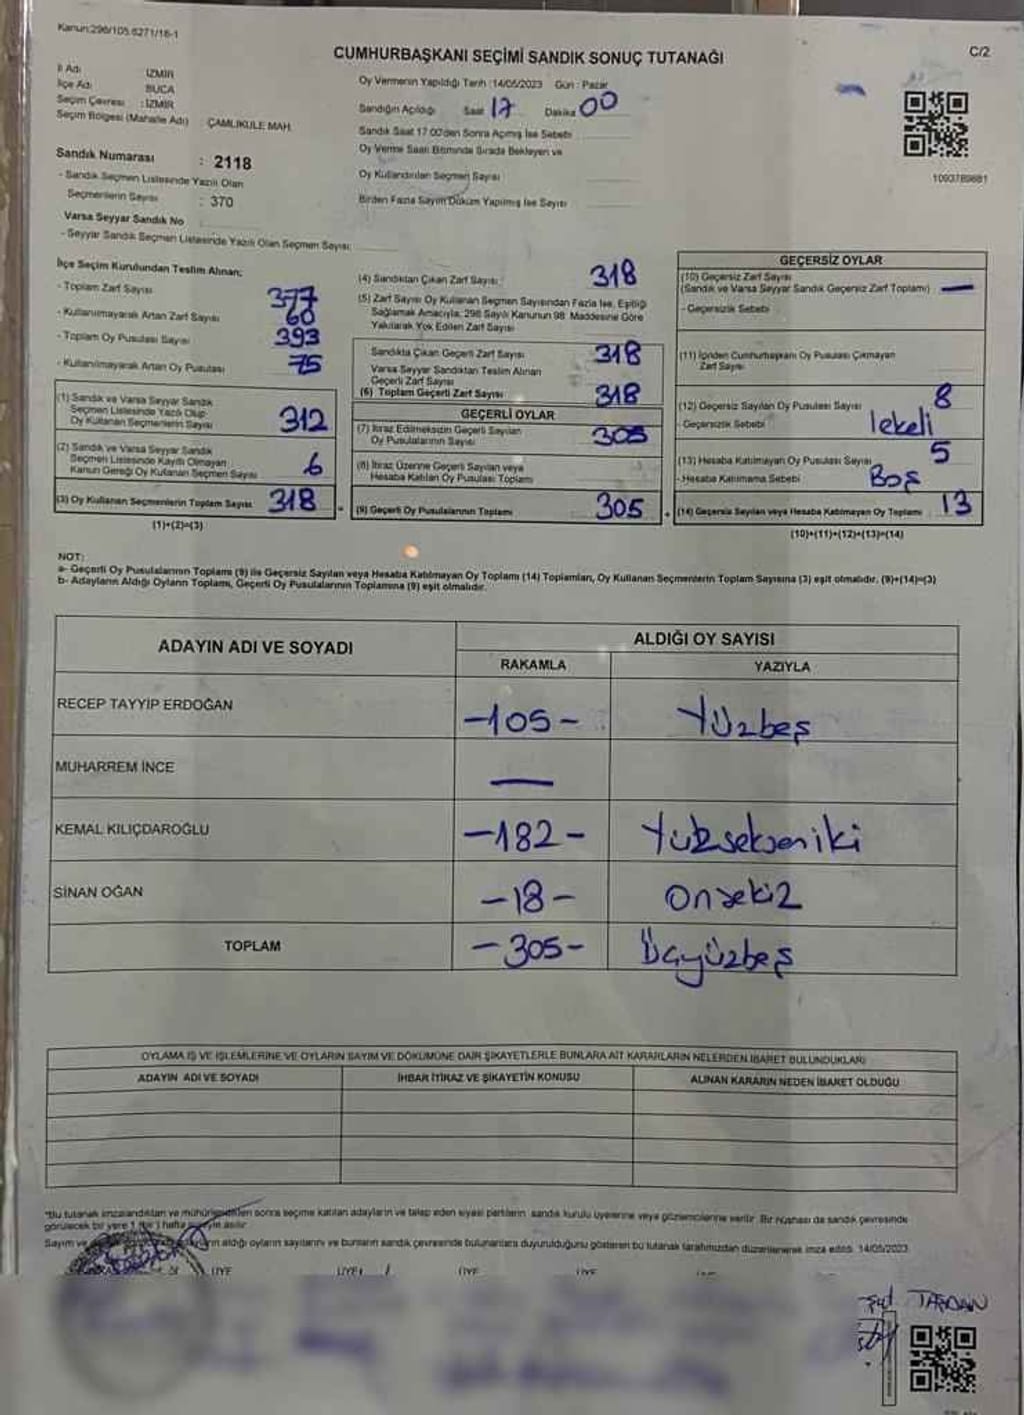 Kanun:298/105.6271/16-1
CUMHURBAŞKANI SEÇİMİ SANDIK SONUÇ TUTANAĞI
C/2
İl Adı : İZMİR
İlçe Adı : BUCA
Seçim Çevresi : İZMİR
Seçim Bölgesi (Mahalle Adı) ÇAMLIKULE MAH.
Sandık Numarası : 2118
- Sandık Seçmen Listesinde Yazılı Olan
Seçmenlerin Sayısı : 370
Varsa Seyyar Sandık No
- Seyyar Sandık Seçmen Listesinde Yazılı Olan Seçmen Sayısı:
Oy Vermenin Yapıldığı Tarih :14/05/2023 Gün : Pazar
Sandığın Açıldığı Saat 17 Dakika 00
Sandık Saat 17.00'den Sonra Açılmış İse Sebebi
Oy Verme Saati Bitiminde Sırada Bekleyen ve
Oy Kullandırılan Seçmen Sayısı
Birden Fazla Sayım Döküm Yapılmış İse Sayısı
1093789681
İlçe Seçim Kurulundan Teslim Alınan;
- Toplam Zarf Sayısı 377
- Kullanılmayarak Artan Zarf Sayısı 60
- Toplam Oy Pusulası Sayısı 393
- Kullanılmayarak Artan Oy Pusulası 75
(1) Sandık ve Varsa Seyyar Sandık
Seçmen Listesinde Yazılı Olup
Oy Kullanan Seçmenlerin Sayısı 312
(2) Sandık ve Varsa Seyyar Sandık
Seçmen Listesinde Kayıtlı Olmayan
Kanun Gereği Oy Kullanan Seçmen Sayısı 6
(3) Oy Kullanan Seçmenlerin Toplam Sayısı 318
(1)+(2)=(3)
(4) Sandıktan Çıkan Zarf Sayısı 318
(5) Zarf Sayısı Oy Kullanan Seçmen Sayısından Fazla İse, Eşitliği
Sağlamak Amacıyla, 298 Sayılı Kanunun 98. Maddesine Göre
Yakılarak Yok Edilen Zarf Sayısı
Sandıkta Çıkan Geçerli Zarf Sayısı 318
Varsa Seyyar Sandıktan Teslim Alınan
Geçerli Zarf Sayısı
(6) Toplam Geçerli Zarf Sayısı 318
GEÇERLİ OYLAR
(7) İtiraz Edilmeksizin Geçerli Sayılan
Oy Pusulalarının Sayısı 305
(8) İtiraz Üzerine Geçerli Sayılan veya
Hesaba Katılan Oy Pusulası Toplamı
(9) Geçerli Oy Pusulalarının Toplamı 305
GEÇERSİZ OYLAR
(10) Geçersiz Zarf Sayısı
(Sandık ve Varsa Seyyar Sandık Geçersiz Zarf Toplamı) —
- Geçersizlik Sebebi
(11) İçinden Cumhurbaşkanı Oy Pusulası Çıkmayan
Zarf Sayısı
(12) Geçersiz Sayılan Oy Pusulası Sayısı 8
- Geçersizlik Sebebi lekeli
(13) Hesaba Katılmayan Oy Pusulası Sayısı 5
- Hesaba Katılmama Sebebi Boş
(14) Geçersiz Sayılan veya Hesaba Katılmayan Oy Toplamı 13
(10)+(11)+(12)+(13)=(14)
NOT:
a- Geçerli Oy Pusulalarının Toplamı (9) ile Geçersiz Sayılan veya Hesaba Katılmayan Oy Toplamı (14) Toplamları, Oy Kullanan Seçmenlerin Toplam Sayısına (3) eşit olmalıdır. (9)+(14)=(3)
b- Adayların Aldığı Oyların Toplamı, Geçerli Oy Pusulalarının Toplamına (9) eşit olmalıdır.
ADAYIN ADI VE SOYADI
ALDIĞI OY SAYISI
RAKAMLA YAZIYLA
RECEP TAYYİP ERDOĞAN -105- Yüzbeş
MUHARREM İNCE —
KEMAL KILIÇDAROĞLU -182- Yüksekseniki
SİNAN OĞAN -18- Onsekiz
TOPLAM -305- Üçyüzbeş
OYLAMA İŞ VE İŞLEMLERİNE VE OYLARIN SAYIM VE DÖKÜMÜNE DAİR ŞİKAYETLERLE BUNLARA AİT KARARLARIN NELERDEN İBARET BULUNDUKLARI
ADAYIN ADI VE SOYADI İHBAR İTİRAZ VE ŞİKAYETİN KONUSU ALINAN KARARIN NEDEN İBARET OLDUĞU
*Bu tutanak imzalandıktan ve mühürlendikten sonra seçime katılan adayların ve talep eden siyasi partilerin sandık kurulu üyelerine veya gözlemcilerine verilir. Bir nüshası da sandık çevresinde
görülecek bir yere 1 (bir) hafta süreyle asılır.
Sayım ve aldığı oyların sayılarını ve bunların sandık çevresinde bulunanlara duyurulduğunu gösteren bu tutanak tarafımızdan düzenlenerek imza edildi. 14/05/2023
ÜYE ÜYE ÜYE ÜYE
TAŞDAN